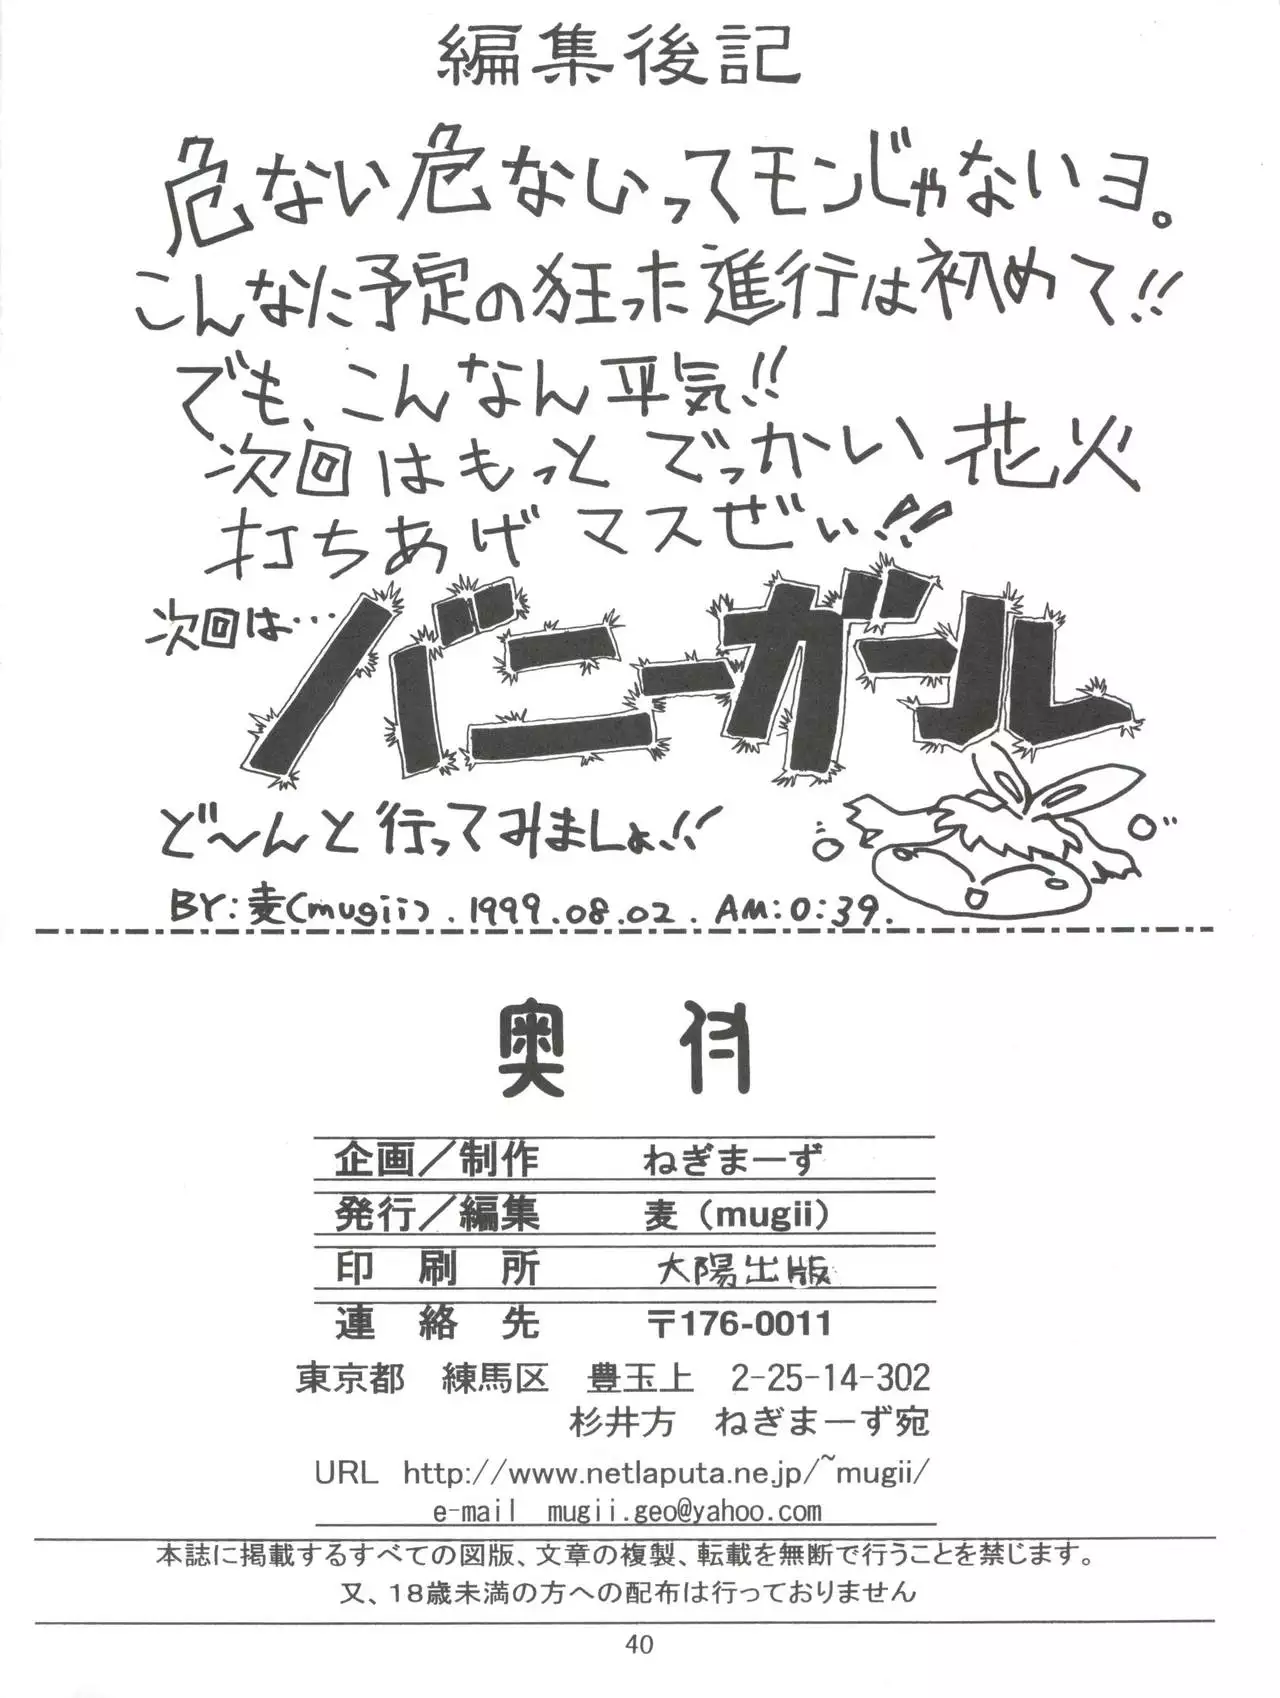 編集後記
危ない危ないってモンじゃないヨ。
こんなに予定の狂った進行は初めて!!
でも、こんなん平気!!
次回はもっとでっかい花火
打ちあげマスぜぃ!!
次回は…
バニーガール
ど〜んと行ってみましょ!!
BY:麦(mugii).1999.08.02.AM:0:39.
奥付
企画／制作 ねぎまーず
発行／編集 麦（mugii）
印刷所 大陽出版
連絡先 〒176-0011
東京都 練馬区 豊玉上 2-25-14-302
杉井方 ねぎまーず宛
URL http://www.netlaputa.ne.jp/~mugii/
e-mail mugii.geo@yahoo.com
本誌に掲載するすべての図版、文章の複製、転載を無断で行うことを禁じます。
又、18歳未満の方への配布は行っておりません
40